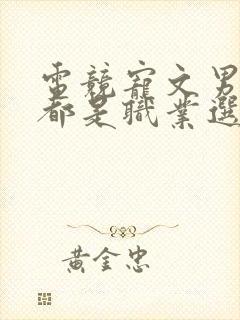 電競寵文男
都是職業選
黃金忠